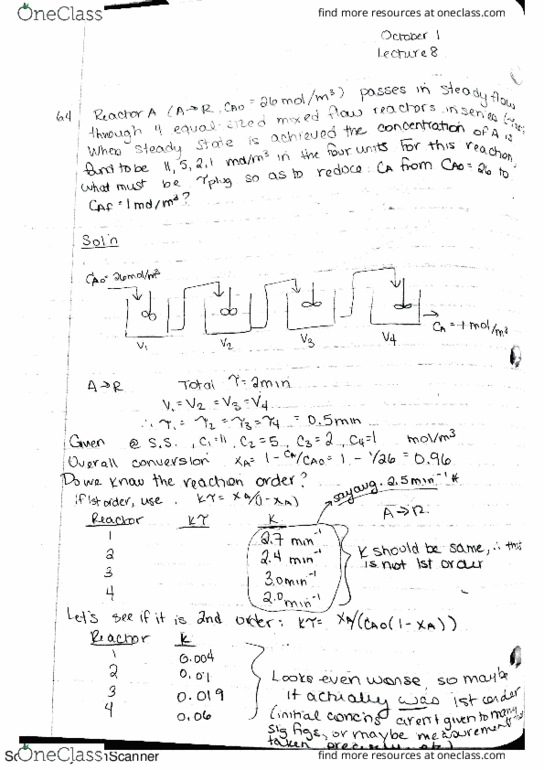 OneClass
find more resources at oneclass.com
October 1
Lecture 8
6.4 Reactor A (A→R, CA0 = 26 mol/m³) passes in steady flow
through 4 equal-sized mixed flow reactors in series
When steady state is achieved the concentration of A is
found to be 11, 5, 2, 1 mol/m³ in the four units For this reaction,
what must be τplug so as to reduce CA from CA0 = 26 to
CAf = 1 mol/m³?
Sol'n
CA0 = 26 mol/m³
CA = 1 mol/m³
V1 V2 V3 V4
A→R Total τ = 2min
V1 = V2 = V3 = V4
∴ τ1 = τ2 = τ3 = τ4 = 0.5 min
Given @ S.S., C1=11, C2=5, C3=2, C4=1 mol/m³
Overall conversion XA = 1 - CA/CA0 = 1 - 1/26 = 0.96
Do we know the reaction order?
say avg. 2.5 min⁻¹ *
if 1st order, use kτ = XA/(1-XA)
A→R
Reactor kτ k
1 2.7 min⁻¹
2 2.4 min⁻¹
3 3.0 min⁻¹
4 2.0 min⁻¹
K should be same, ∴ this
is not 1st order
Let's see if it is 2nd order: kτ = XA/(CA0(1-XA))
Reactor k
1 0.004
2 0.01
3 0.019
4 0.06
Looks even worse, so maybe
it actually was 1st order
(initial concns aren't given to many
sig figs, or maybe measurement
taken
OneClass
Scanner
find more resources at oneclass.com